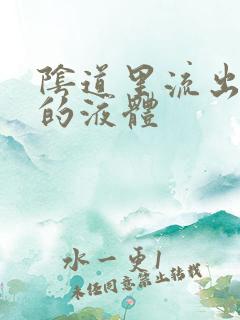 陰道里流出
的液體
水一更1
未经同意禁止转载